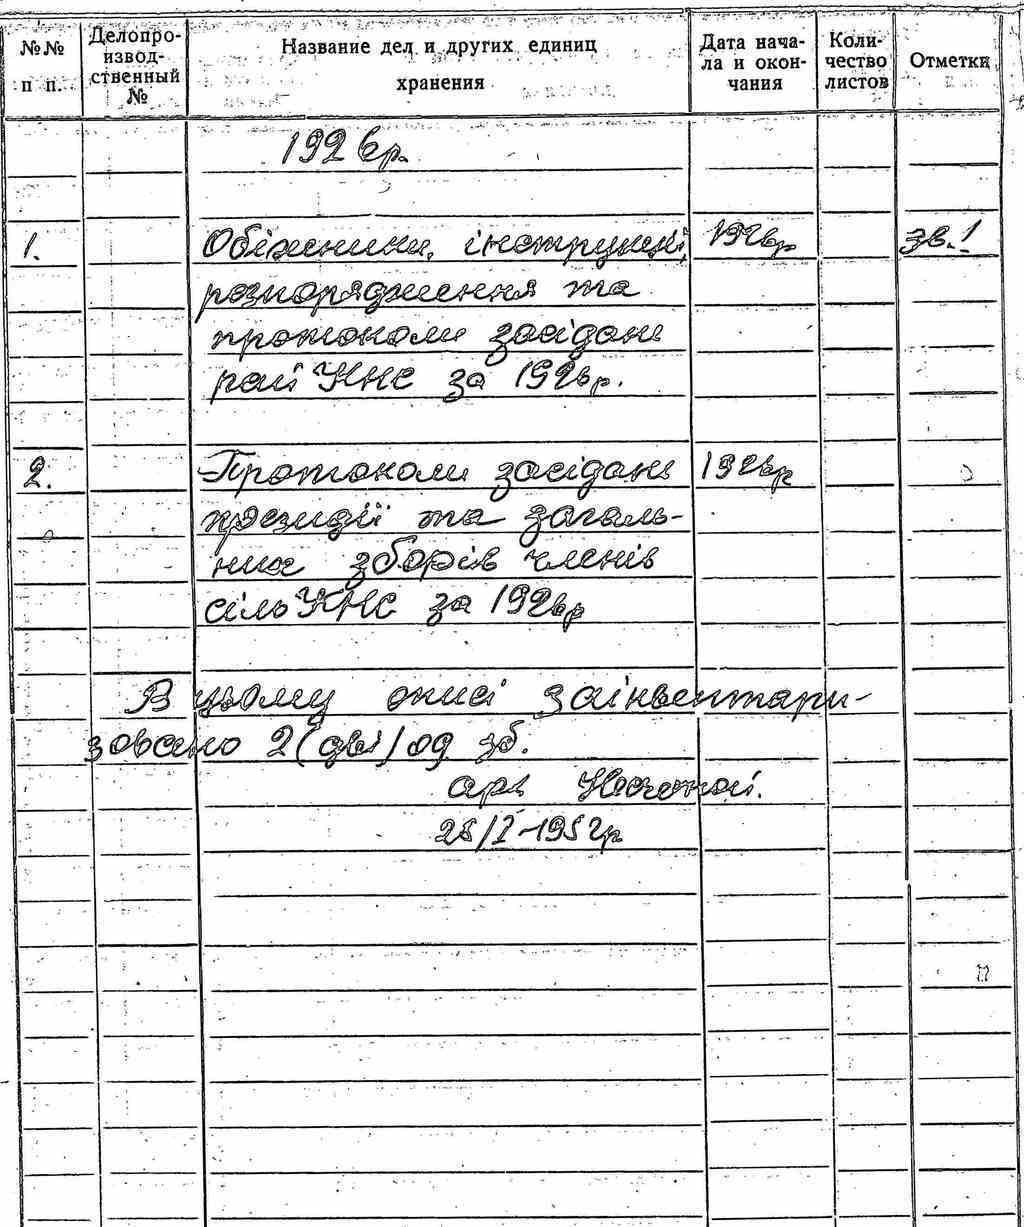 №№ п п.
Делопро-
извод-
ственный
№
Название дел и других единиц
хранения
Дата нача-
ла и окон-
чания
Коли-
чество
листов
Отметки
1926р.
1. Обіжники, інструкції, 1926р зв. 1
розпорядження та
протоколи засідань
рай КНС за 1926р.
2. Протоколи засідань 1926р
президії та загаль-
них зборів членів
сіль КНС за 1926р
В цьому описі заінвентари-
зовано 2 (дві) од зб.
арх